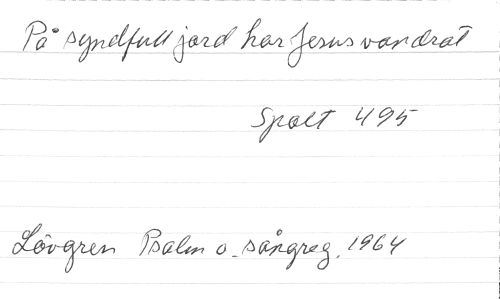 På syndfull jord har Jesus vandrat
Spalt 495
Lövgren Psalm o. sångreg. 1964